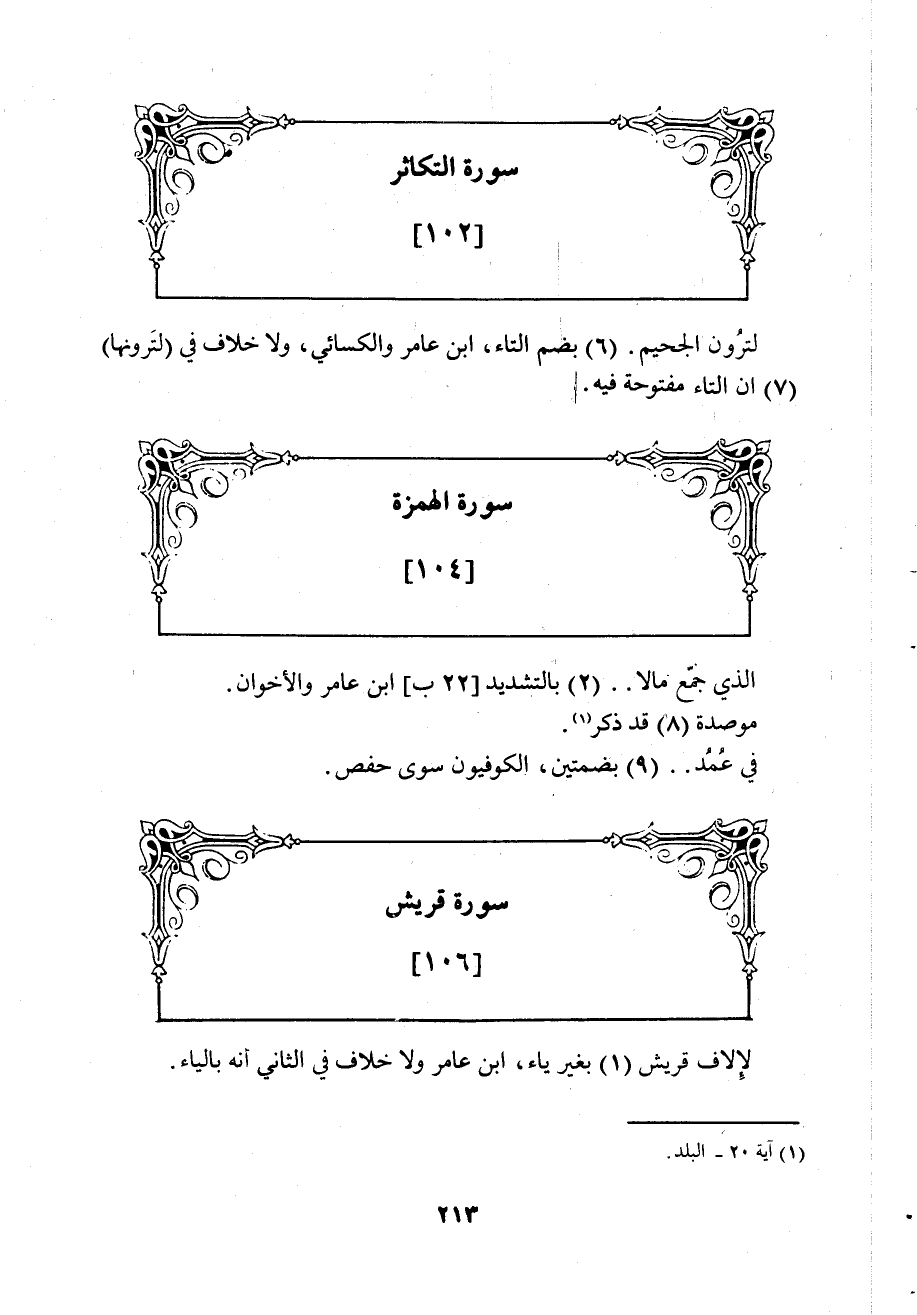 سورة التكاثر
[١٠٢]
لترُون الجحيم. (٦) بضم التاء، ابن عامر والكسائي، ولا خلاف في (لتَرونها)
(٧) ان التاء مفتوحة فيه.
سورة الهمزة
[١٠٤]
الذي جمّع مالا.. (٢) بالتشديد [٢٢ ب] ابن عامر والأخوان.
موصدة (٨) قد ذكر(١).
في عُمُد.. (٩) بضمتين، الكوفيون سوى حفص.
سورة قريش
[١٠٦]
لإِلاف قريش (١) بغير ياء، ابن عامر ولا خلاف في الثاني أنه بالياء.
(١) آية ٢٠ ـ البلد.
٢١٣